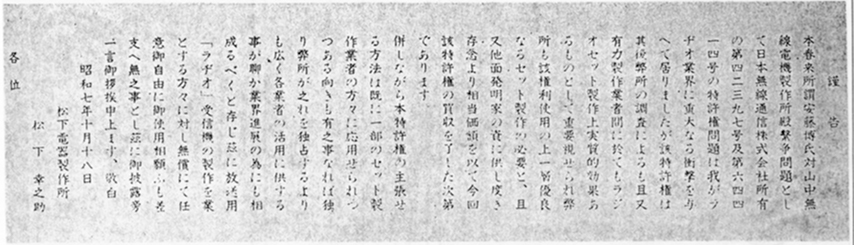 謹告
本春來所謂安藤博氏對山中無
線電機製作所係爭問題とし
て日本無線通信株式会社所有
の第四二三九七号及第六四四
一四号の特許権問題は我がラ
ヂオ業界に重大なる衝撃を与
へて居りましたが該特許権は
其後弊所の調査によるも且又
有力製作業者間に於てもラジ
オセット製作上実質的効果あ
るものとして重要視せられ弊
所も該権利使用の上一層優良
なるセット製作の必要と、且
又他面発明家の資に供し度き
存念より相当価額を以て今回
該特許権の買収を了した次第
であります
併しながら本特許権の主張せ
る方法は既に一部のセット製
作業者の方々に応用せられつ
つある向きも有之事なれば独
り弊所が之れを独占するより
も広く各業者の活用に供する
事が聊か業界進展の為にも相
成るべくと存じ茲に放送用
「ラヂオ」受信機の製作を業
とする方々に対し無償にて任
意御自由に御使用相願ふも差
支へ無之事とし茲に御披露旁
一言御挨拶申上ます、敬白
昭和七年十月十八日
松下電器製作所
松下幸之助
各位